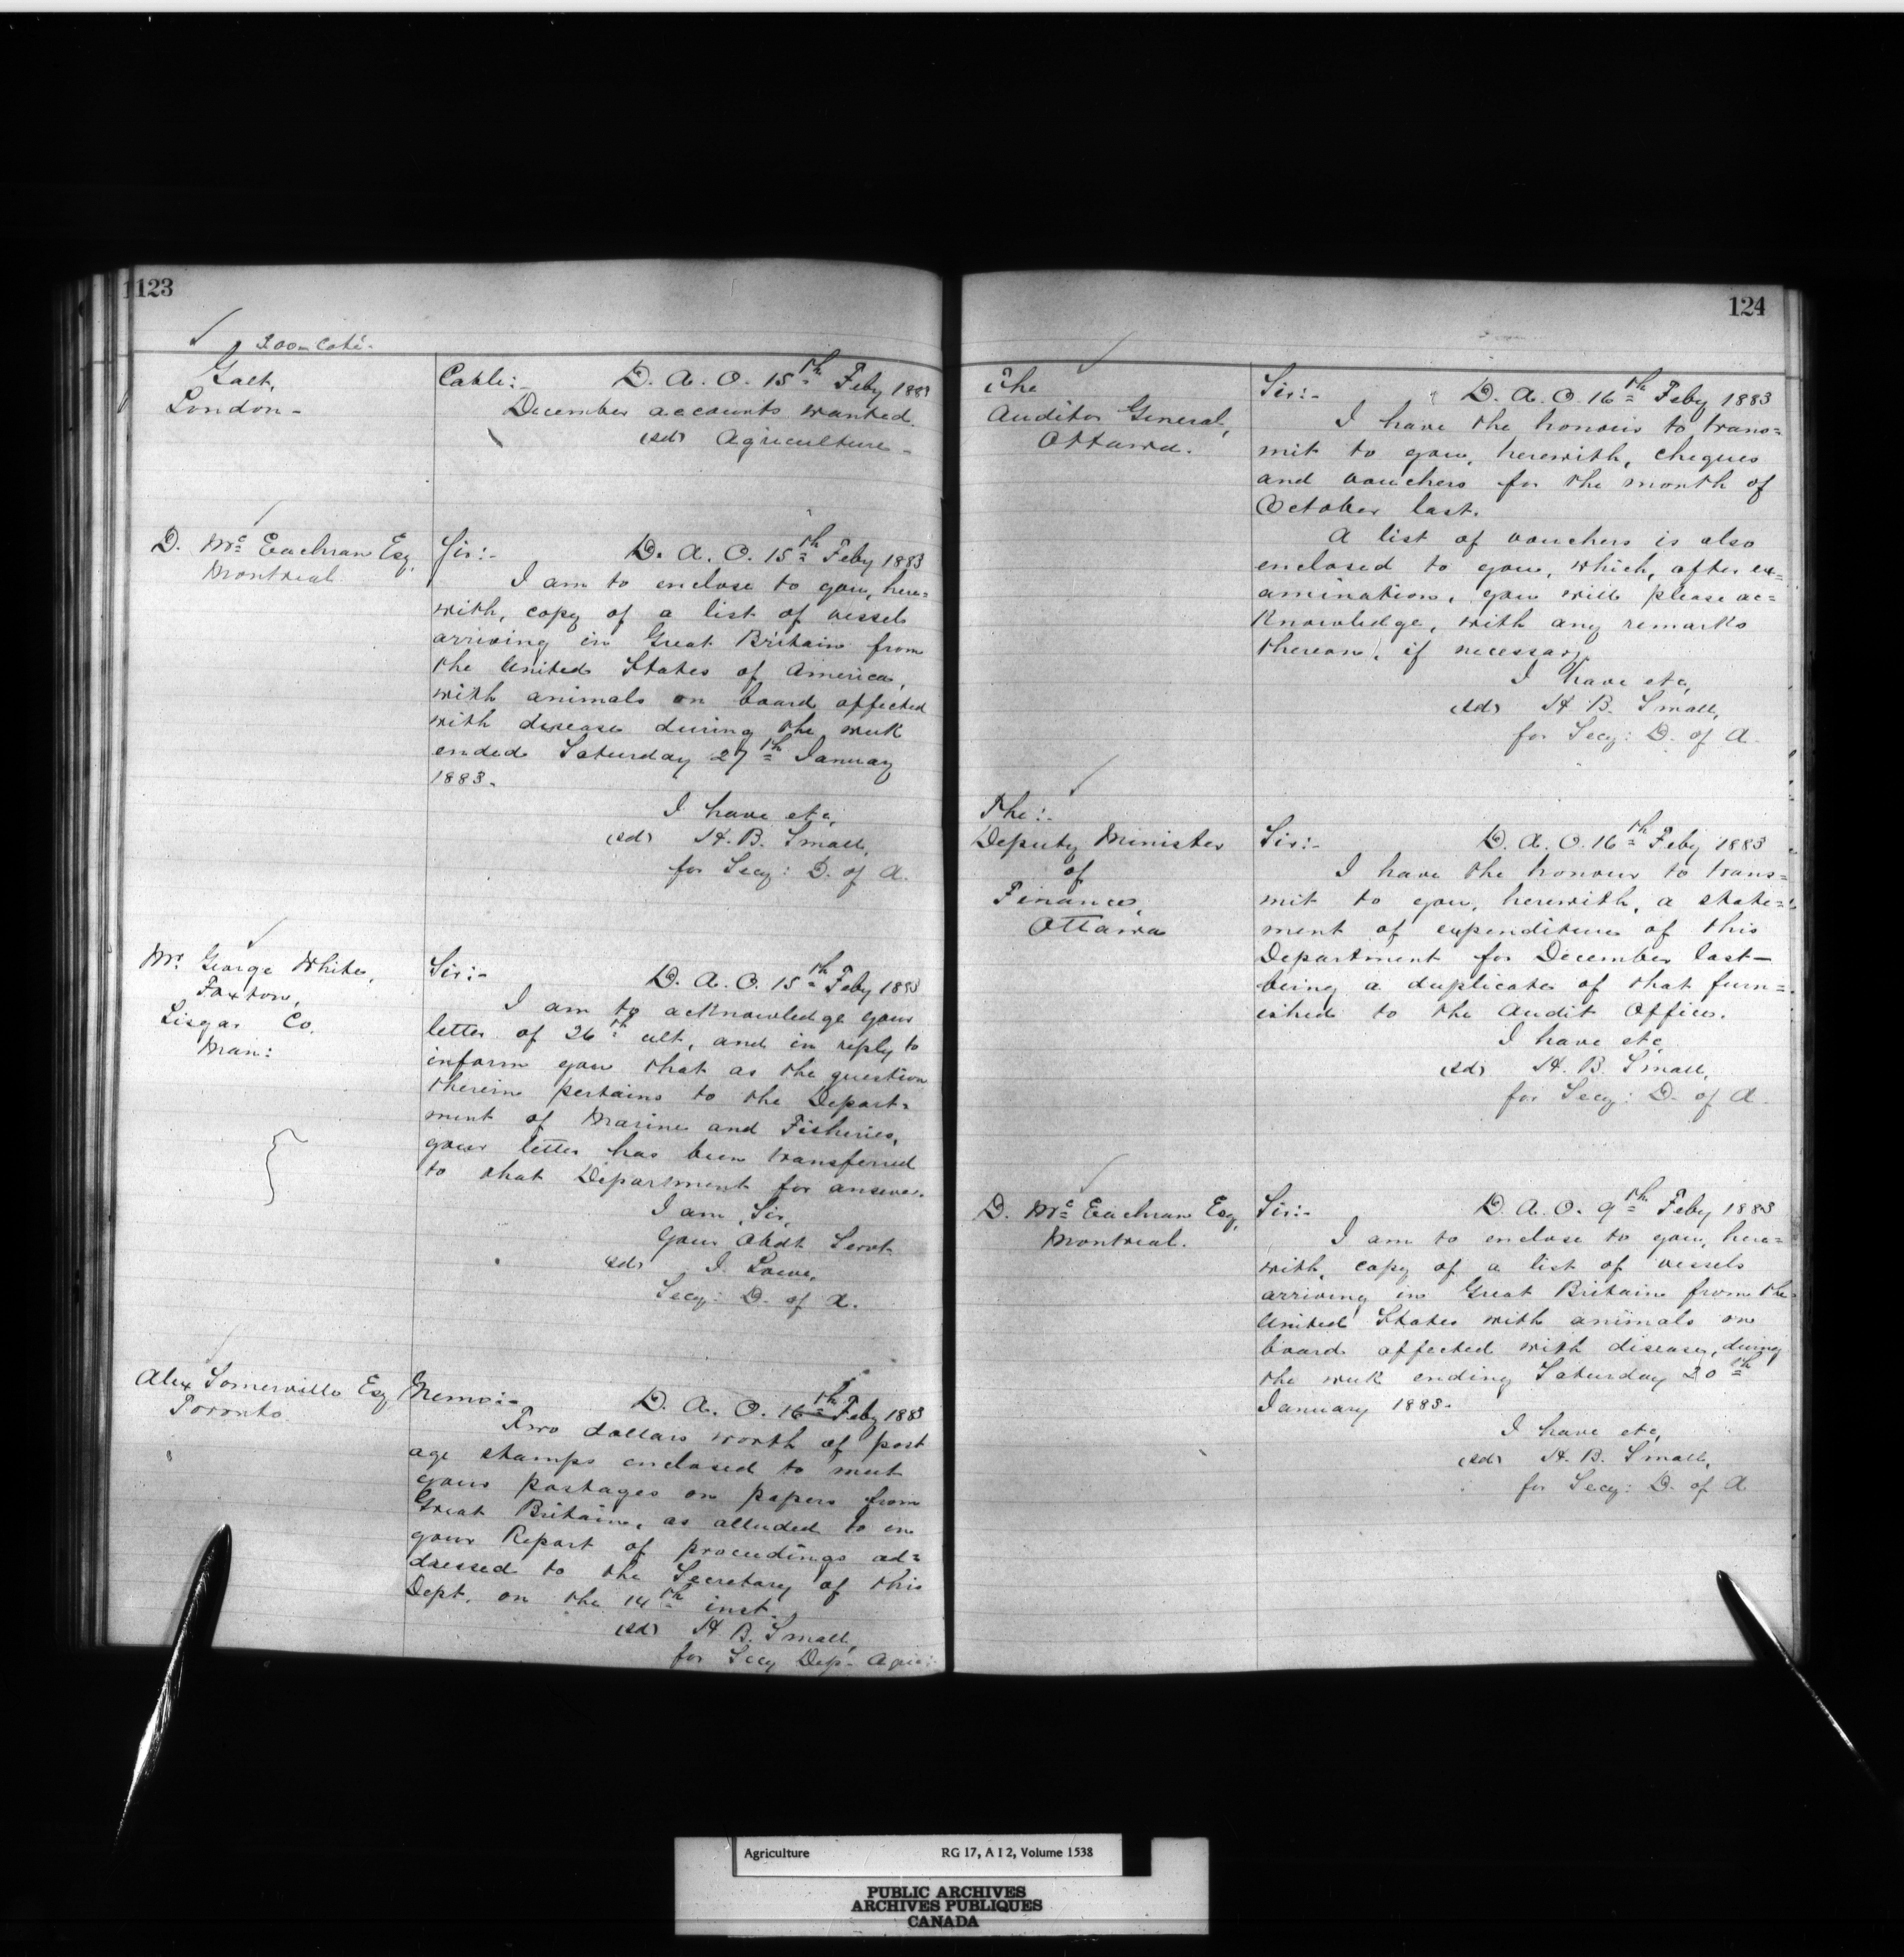 123
Galt,
London -
Cable:- D. A. O. 15th Feby 1883
December accounts wanted.
(sd) Agriculture -
D. Mc Eachran Esq,
Montreal
Sir:- D. A. O. 15th Feby 1883
I am to enclose to you, here=
with, copy of a list of vessels
arriving in Great Britain from
the United States of America,
with animals on board affected
with disease during the week
ended Saturday 27th January
1883.
I have etc,
(sd) H. B. Small,
for Secy: D. of A.
Mr George White,
Foxton,
Lisgar Co.
Man:
Sir:- D. A. O. 15th Feby 1883
I am to acknowledge your
letter of 26th ult, and in reply to
inform you that as the question
therein pertains to the Depart=
ment of Marine and Fisheries,
your letter has been transferred
to that Department for answer.
I am, Sir,
Your Obdt Servt
(sd) J. Lowe,
Secy: D. of A.
Alex Somerville Esq
Toronto.
Memo:- D. A. O. 16th Feby 1883
Two dollars worth of post
age stamps enclosed to meet
your postages on papers from
Great Britain, as alluded to in
your Report of proceedings ad=
dressed to the Secretary of this
Dept. on the 14th inst.
(sd) H B. Small,
for Secy Dep- Agric:
124
The
Auditor General,
Ottawa.
Sir:- D. A. O. 16th Feby 1883
I have the honour to trans=
mit to you, herewith, cheques
and vouchers for the month of
October last.
A list of vouchers is also
enclosed to you, which, after ex=
amination, you will please ac=
knowledge, with any remarks
thereon, if necessary.
I have etc,
(sd) H B. Small,
for Secy: D. of A.
The:-
Deputy Minister
of
Finance,
Ottawa
Sir:- D. A. O. 16th Feby 1883
I have the honour to trans=
mit to you, herewith, a state=
ment of expenditure of this
Department for December last-
being a duplicate of that furn=
ished to the Audit Office.
I have etc
(sd) H. B. Small,
for Secy: D. of A.
D. Mc Eachran Esq,
Montreal.
Sir:- D. A. O. 9th Feby 1883
I am to enclose to you, here=
with, copy of a list of vessels
arriving in Great Britain from the
United States with animals on
board affected with disease, during
the week ending Saturday 20th
January 1883.
I have etc,
(sd) H. B. Small,
for Secy: D. of A
Agriculture RG 17, A I 2, Volume 1538
PUBLIC ARCHIVES
ARCHIVES PUBLIQUES
CANADA